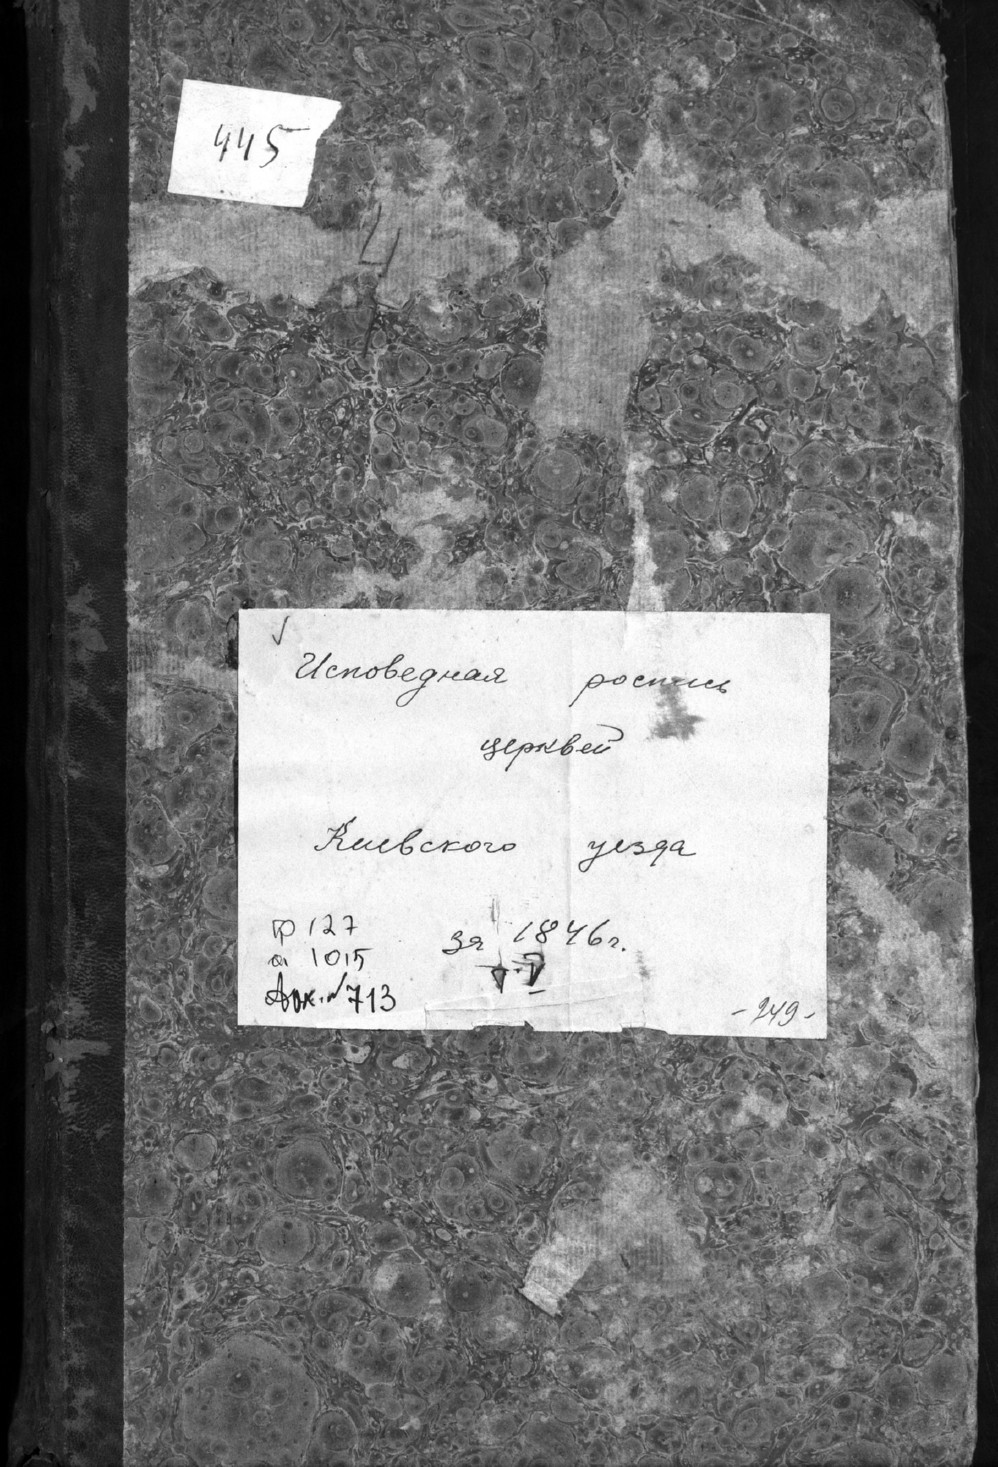 445
4
Исповедная роспись
церквей
Киевского уезда
ф 127
за 1846г.
о 1015
Арх. № 713
-249-